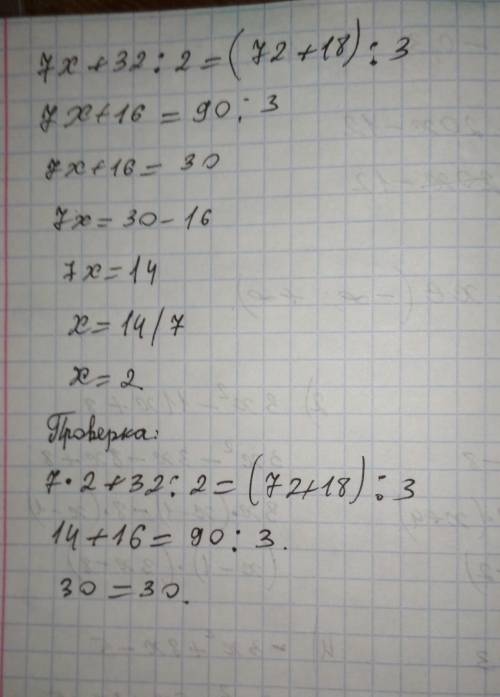 7x+32:2=(72+18):3
7x+16=90:3
7x+16=30
7x=30-16
7x=14
x=14/7
x=2
Проверка:
7·2+32:2=(72+18):3
14+16=90:3.
30=30.